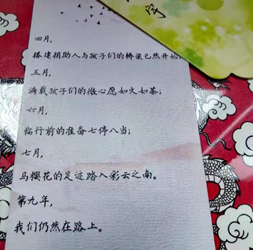 字
四月，
搭建捐助人与孩子们的桥梁已然开始；
五月，
满载孩子们的微心愿如火如荼；
六月，
临行前的准备七停八当；
七月，
马樱花的足迹踏入彩云之南。
第九年，
我们仍然在路上。